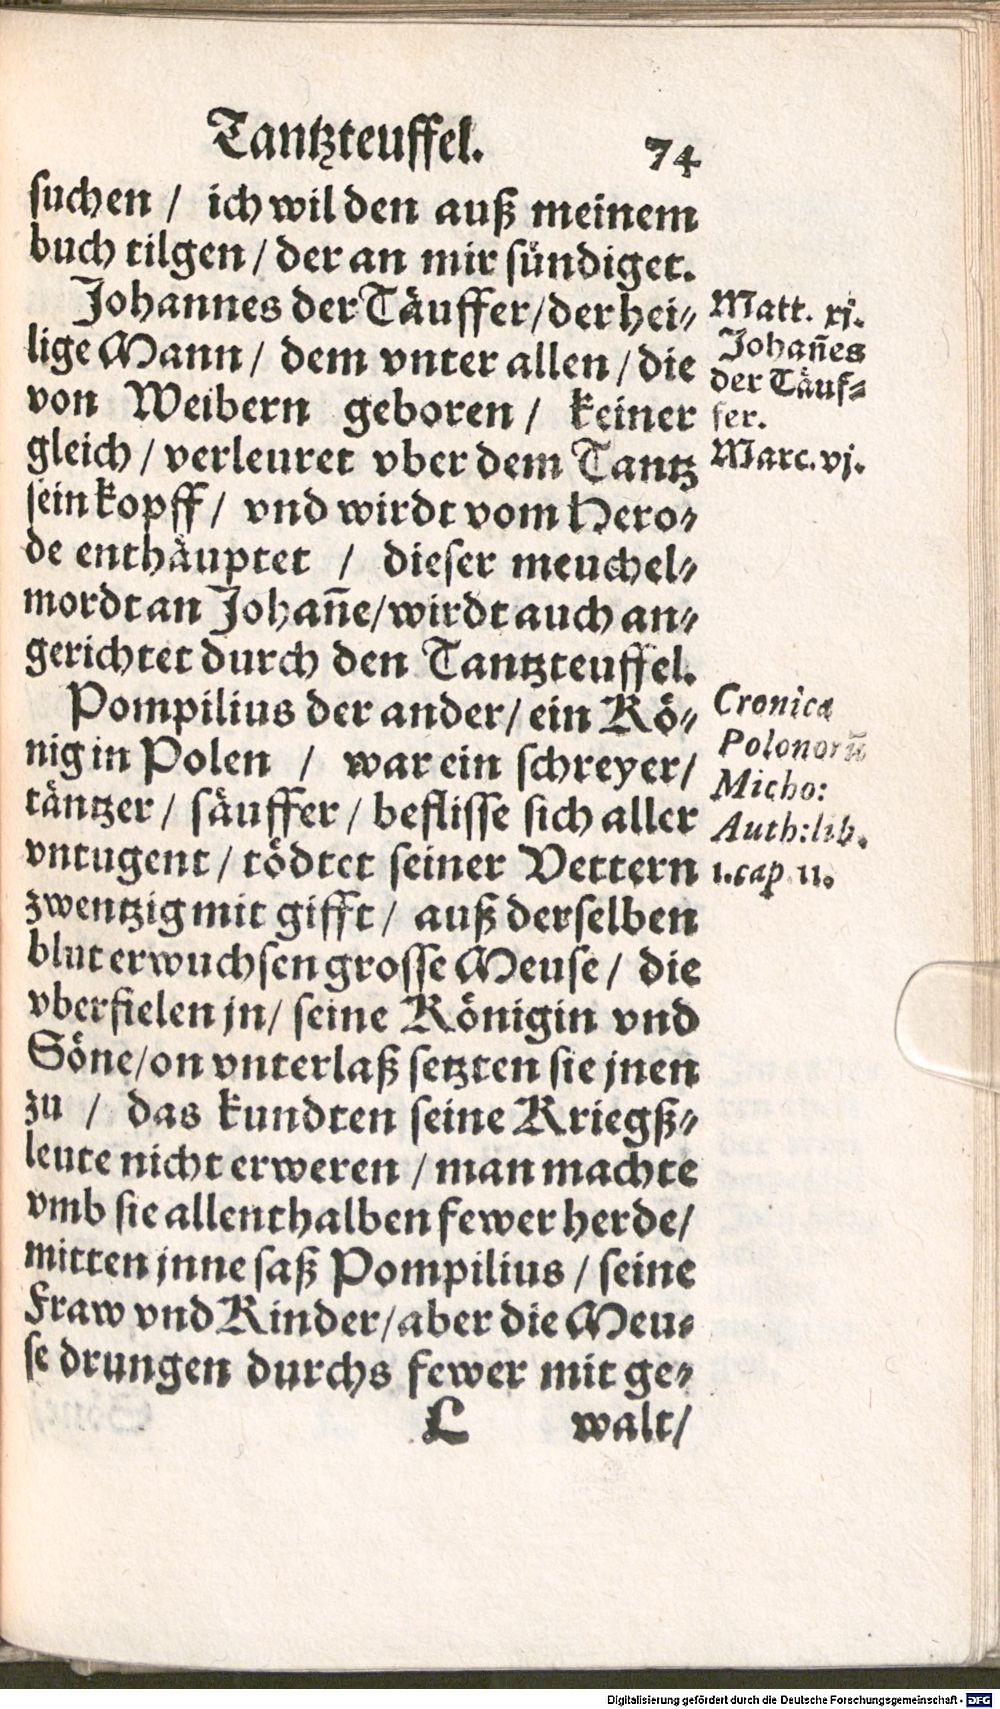 Tantzteuffel. 74
suchen / ich wil den auß meinem
buch tilgen / der an mir sündiget.
Johannes der Täuffer / der hei⸗
lige Mann / dem vnter allen / die
von Weibern geboren / keiner
gleich / verleuret vber dem Tantz
sein kopff / vnd wirdt vom Hero⸗
de enthäuptet / dieser meuchel⸗
mordt an Johañe / wirdt auch an⸗
gerichtet durch den Tantzteuffel.
Matt. xj.
Johañes
der Täuf⸗
fer.
Marc. vj.
Pompilius der ander / ein Kö⸗
nig in Polen / war ein schreyer /
täntzer / säuffer / beflisse sich aller
vntugent / tödtet seiner Vettern
zwentzig mit gifft / auß derselben
blut erwuchsen grosse Meuse / die
vberfielen jn / seine Königin vnd
Söne / on vnterlaß setzten sie jnen
zu / das kundten seine Kriegß⸗
leute nicht erweren / man machte
vmb sie allenthalben fewer herde /
mitten jnne saß Pompilius / seine
Fraw vnd Kinder / aber die Meu⸗
se drungen durchs fewer mit ge⸗
Cronica
Polonorū
Micho:
Auth: lib.
1. cap. 11.
L walt /
Digitalisierung gefördert durch die Deutsche Forschungsgemeinschaft - DFG